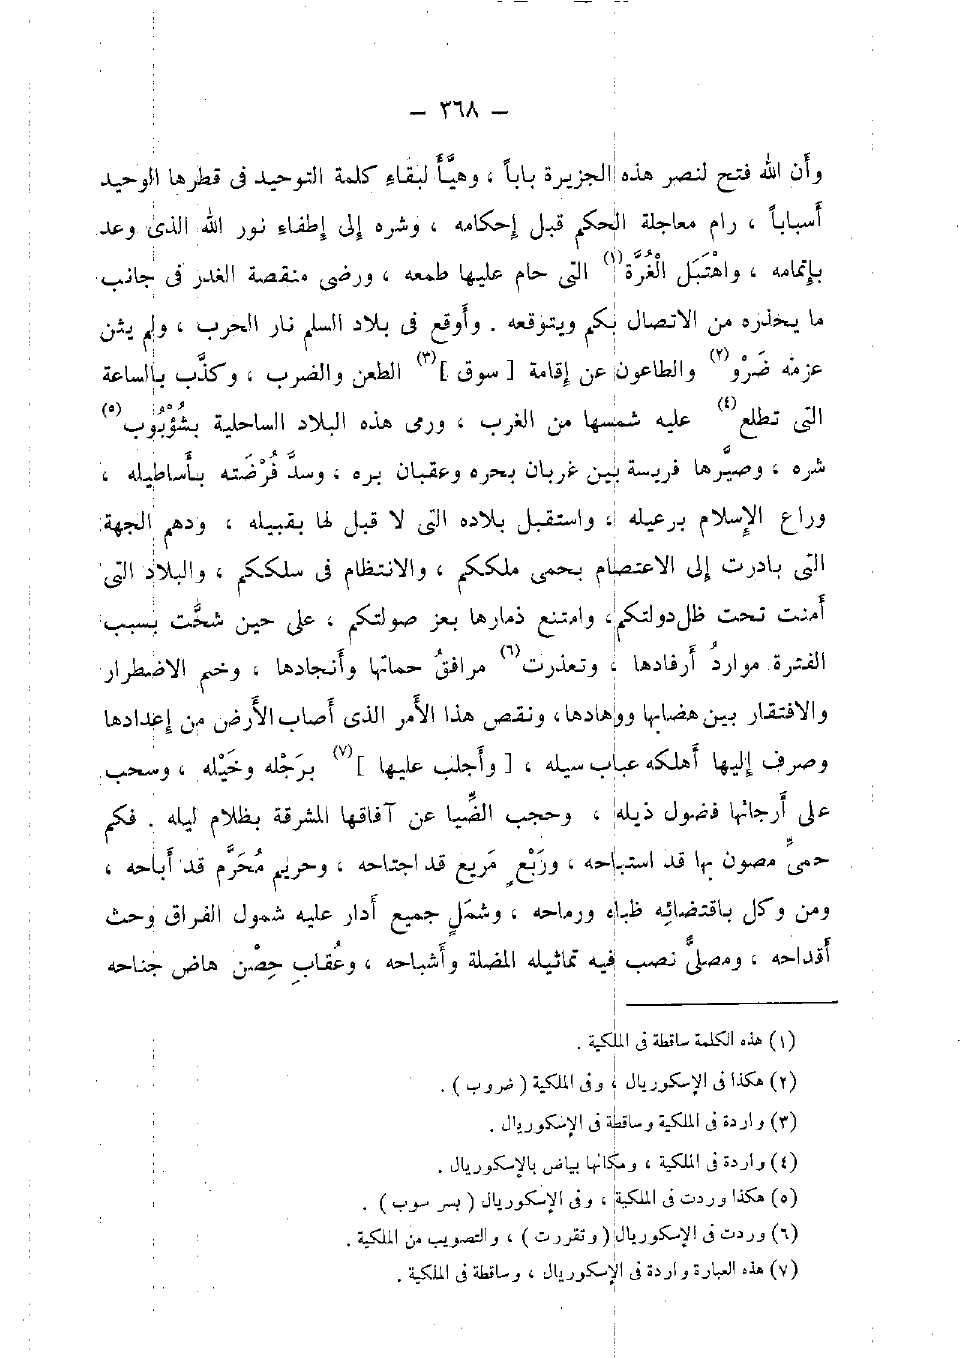 — ٣٦٨ —
وأن الله فتح لنصر هذه الجزيرة باباً ، وهيَّأ لبقاءِ كلمة التوحيد فى قطرها الوحيد
أسباباً ، رام معاجلة الحكم قبل إحكامه ، وشره إلى إطفاءِ نور الله الذى وعد
بإتمامه ، واهْتَبَل الْغُرَّة(١) التى حام عليها طمعه ، ورضى منقصة الغدر فى جانب
ما يحذره من الاتصال بكم ويتوقعه . وأوقع فى بلاد السلم نار الحرب ، ولم يثن
عزمه ضَرْو(٢) والطاعون عن إقامة [ سوق ](٣) الطعن والضرب ، وكذَّب بالساعة
التى تطلع(٤) عليه شمسها من الغرب ، ورمى هذه البلاد الساحلية بشُؤْبُوب(٥)
شره ، وصيَّرها فريسة بين غربان بحره وعقبان بره ، وسدَّ فُرْضَته بأساطيله ،
وراع الإسلام برعيله ، واستقبل بلاده التى لا قبل لها بقبيله ، ودهم الجهة
التى بادرت إلى الاعتصام بحمى ملككم ، والانتظام فى سلككم ، والبلاد التى
أمنت تحت ظل دولتكم، وامتنع ذمارها بعز صولتكم ، على حين شحَّت بسبب
الفترة مواردُ أرفادها ، وتعذرت(٦) مرافقُ حماتها وأنجادها ، وخيم الاضطرار
والافتقار بين هضابها ووهادها، ونقص هذا الأمر الذى أصاب الأرض من إعدادها
وصرف إليها أهلكه عباب سيله ، [ وأجلب عليها ](٧) برَجْله وخَيْله ، وسحب
على أرجائها فضول ذيله ، وحجب الضِّيا عن آفاقها المشرقة بظلام ليله . فكم
حمىً مصون بها قد استباحه ، ورَبْعٍ مَريع قد اجتاحه ، وحريم مُحَرَّم قد أباحه ،
ومن وكل باقتضائه ظباه ورماحه ، وشمْلٍ جميع أدار عليه شمول الفراق وحث
أقداحه ، ومصلىًّ نصب فيه تماثيله المضلة وأشباحه ، وعُقابِ حِصْن هاض جناحه
(١) هذه الكلمة ساقطة فى الملكية .
(٢) هكذا فى الإسكوريال ، وفى الملكية ( ضروب ) .
(٣) واردة فى الملكية وساقطة فى الإسكوريال .
(٤) واردة فى الملكية ، ومكانها بياض بالإسكوريال .
(٥) هكذا وردت فى الملكية ، وفى الإسكوريال ( بسر سوب ) .
(٦) وردت فى الإسكوريال ( وتقررت ) ، والتصويب من الملكية .
(٧) هذه العبارة واردة فى الإسكوريال ، وساقطة فى الملكية .